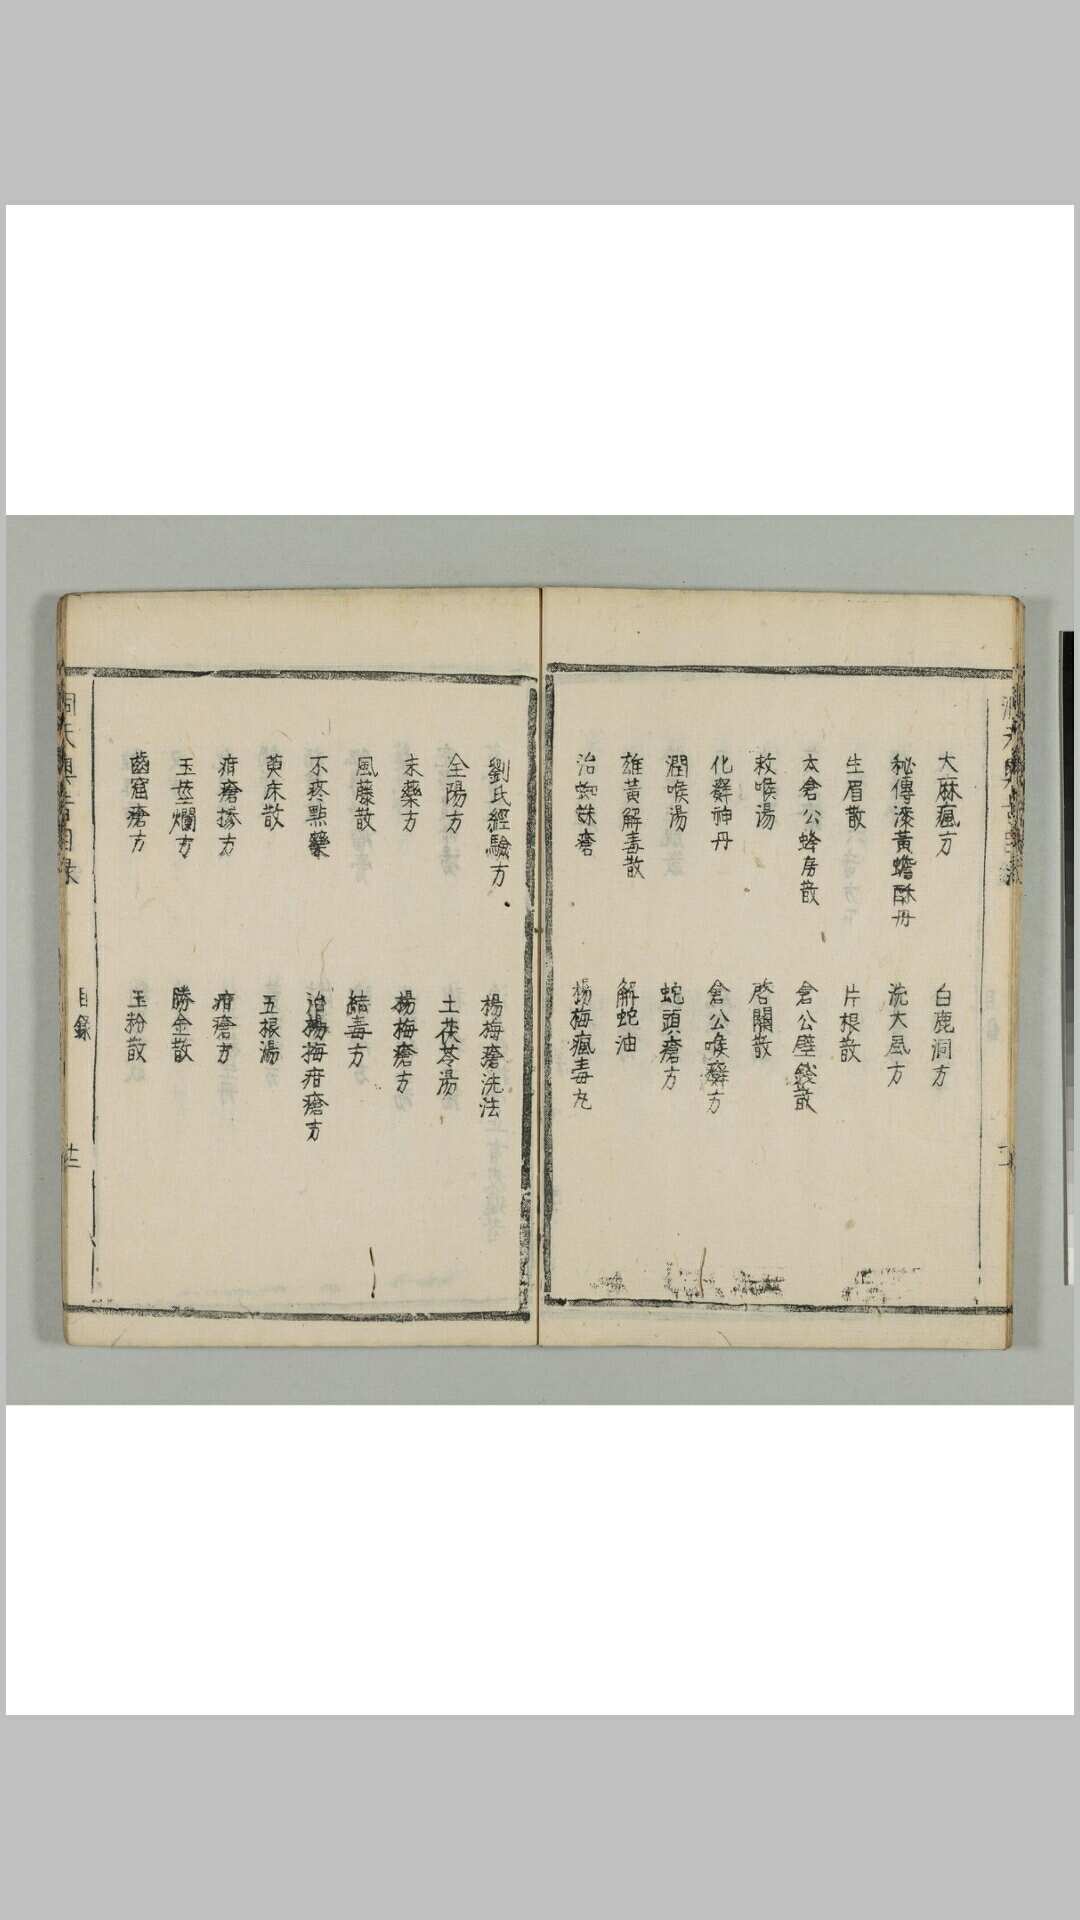 大麻瘋方
白鹿洞方
秘傳漆黃蟾酥丹
洗大風方
生眉散
片根散
太倉公蜂房散
倉公壁錢散
救喉湯
啓關散
化癬神丹
倉公喉癬方
潤喉湯
蛇頭瘡方
雄黃解毒散
解蛇油
治蜘蛛瘡
楊梅瘋毒丸
劉氏經驗方
楊梅瘡洗法
全陽方
土茯苓湯
末藥方
楊梅瘡方
風藤散
結毒方
不疼點藥
治楊梅疳瘡方
萸床散
五根湯
疳瘡摻方
疳瘡方
玉莖爛方
勝金散
齒窟瘡方
玉粉散
目錄